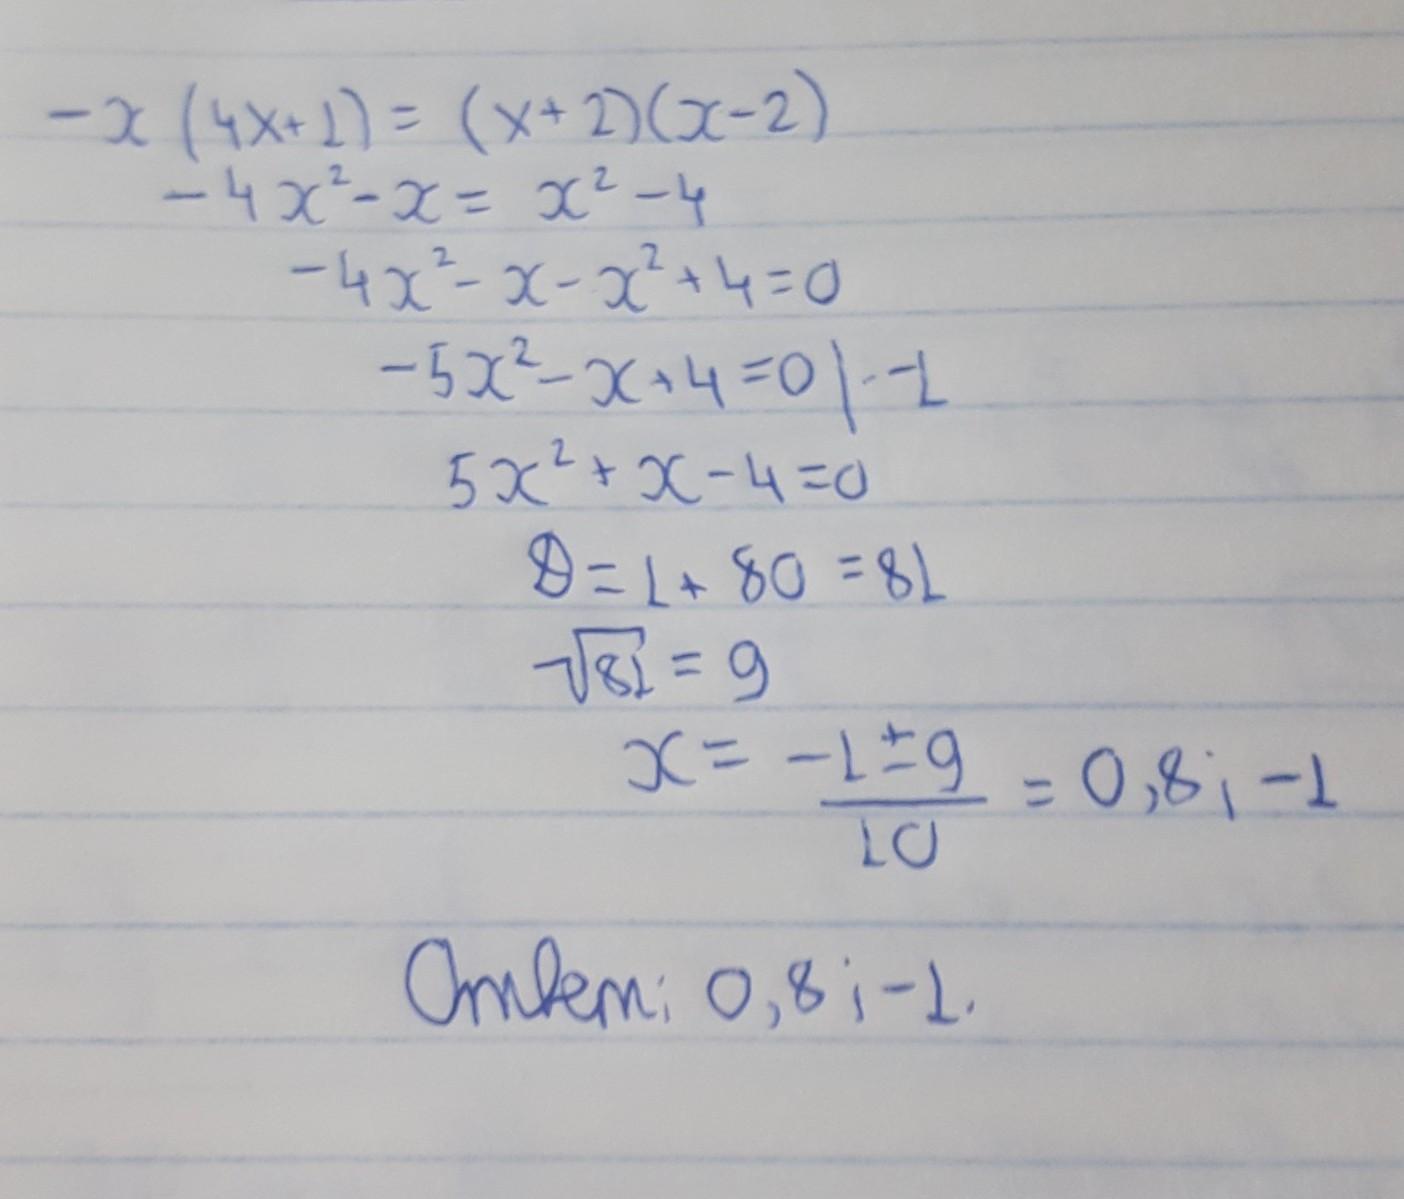 -x(4x+1)=(x+2)(x-2)
-4x²-x=x²-4
-4x²-x-x²+4=0
-5x²-x+4=0|·-1
5x²+x-4=0
D=1+80=81
√81=9
x=(-1±9)/10=0,8;-1
Ответ: 0,8;-1.